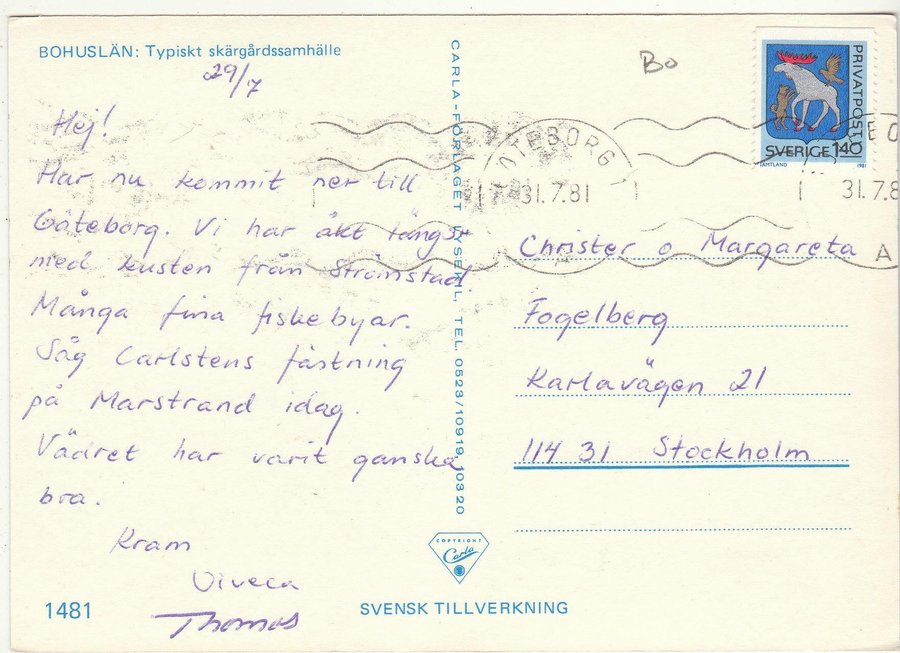 BOHUSLÄN: Typiskt skärgårdssamhälle
29/7
Hej!
Har nu kommit ner till
Göteborg. Vi har åkt längst
med kusten från Strömstad.
Många fina fiskebyar.
Såg Carlstens fästning
på Marstrand idag.
Vädret har varit ganska
bra.
Kram
Viveca
Thomas
1481
CARLA-FÖRLAGET LYSEKIL, TEL. 0523/10919, 10320
COPYRIGHT
Carla
SVENSK TILLVERKNING
Bo
PRIVATPOST
SVERIGE 140
JÄMTLAND 1981
GÖTEBORG 1
31.7.81
31.7.8
A
Christer o Margareta
Fogelberg
Karlavägen 21
114 31 Stockholm